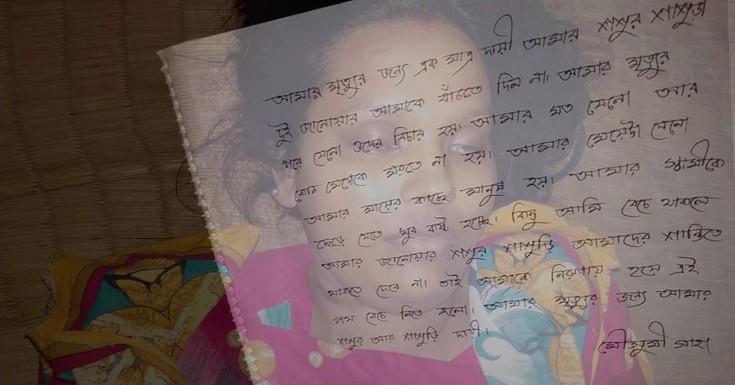 আমার মৃত্যুর জন্যে এক মাত্র দায়ী আমার শশুর শাশুড়ী
দুই জানোয়ার আমাকে বাঁচতে দিল না। আমার মৃত্যুর
পরে যেনো ওদের বিচার হয়। আমার মত যেনো আর
কোন মেয়েকে মরতে না হয়। আমার মেয়েটা যেনো
আমার মায়ের কাছেই মানুষ হয়। আমার স্বামীকে
ছেড়ে যেতে খুব কষ্ট হচ্ছে। কিন্তু আমি বেচে থাকলে
আমার জানোয়ার শশুর শাশুড়ি আমাদের শান্তিতে
থাকতে দেবে না। তাই আমাকে নিরুপায় হয়ে এই
পথ বেছে নিতে হলো। আমার মৃত্যুর জন্য আমার
শশুর আর শাশুড়ি দায়ী।
মৌসুমী সাহা